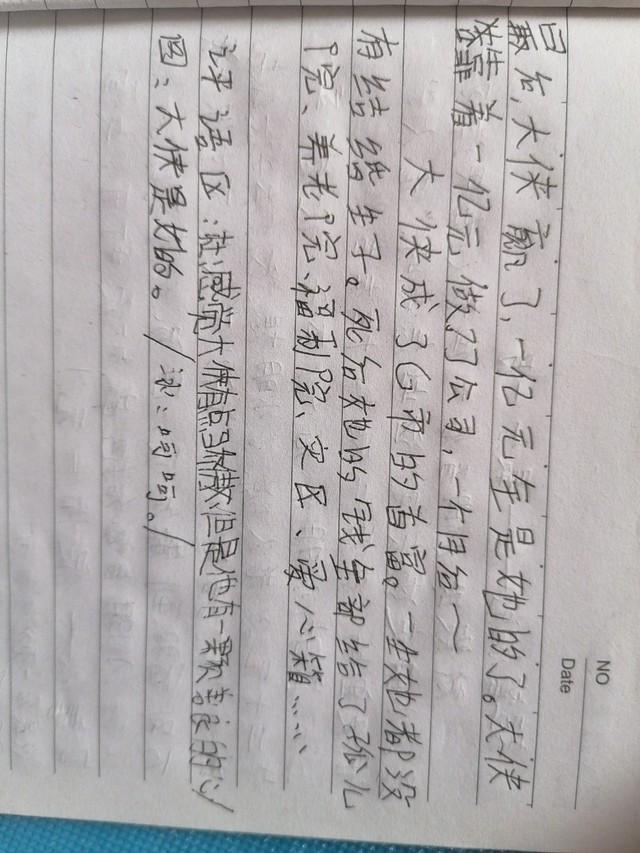 NO
Date
最后，大侠赢了，一亿元全是她的了。大侠
靠着一亿元做了公司，一个月后～
大侠成了G市的首富。一生她都没
有结结生子。死后她的钱全部给了孤儿
院、养老院、福利院、灾区、爱心箱……
评语区：社：感觉大侠有点马楸楸但是他有一颗善良的心/
图：大侠是她的。/派：呵呵。/